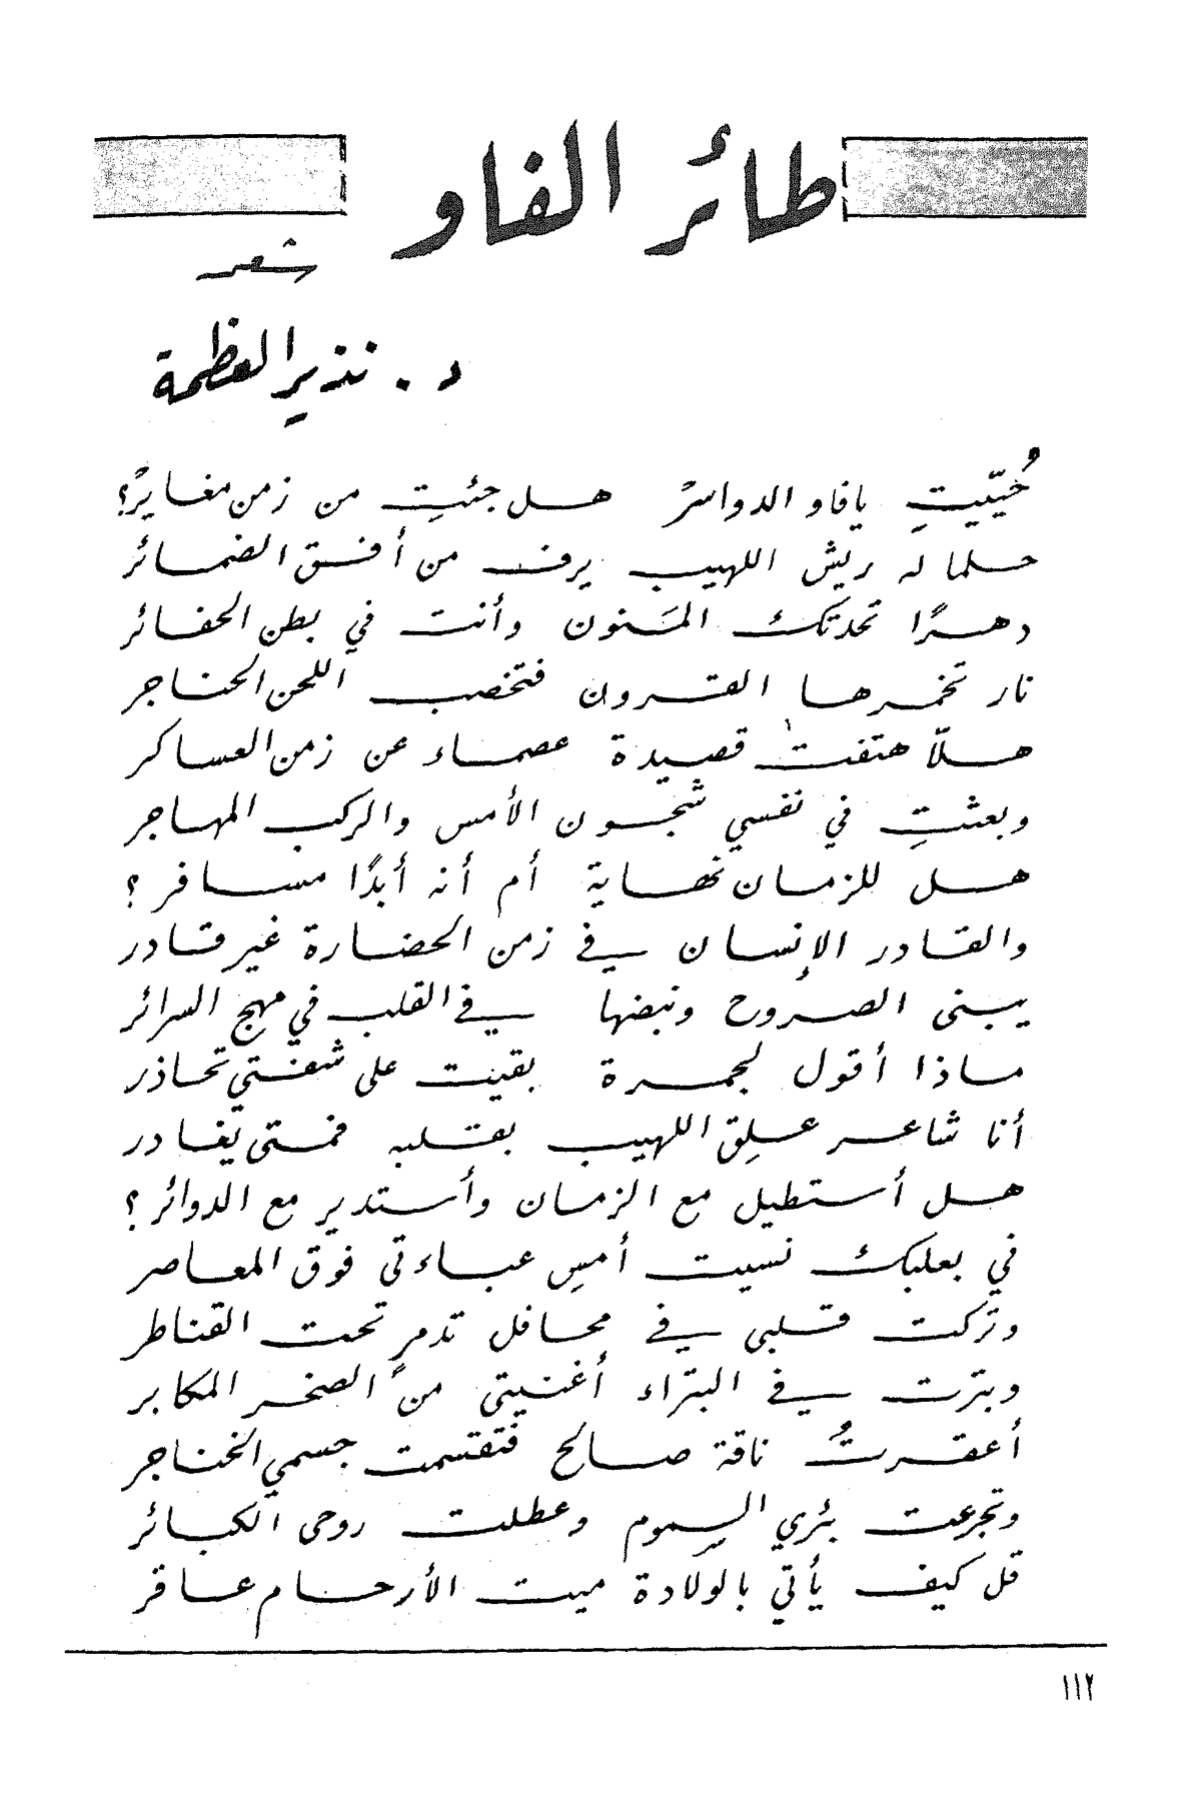 طائر الفاو
شعر
د. نذير العظمة
حُيّيتِ يا فاو الدواسرْ هل جئتِ من زمن مغايرْ؟
حلما له ريش اللهيب يرف من أفق الضمائر
دهرًا تحدتك المَنون وأنت في بطن الحفائر
نار تخمرها القرون فتخصب اللحن الحناجر
هلّا هتفت قصيدة عصماء عن زمن العساكر
وبعثتِ في نفسي شجون الأمس والركب المهاجر
هل للزمان نهاية أم أنه أبدًا مسافر؟
والقادر الإنسان في زمن الحضارة غير قادر
يبنى الصروح ونبضها في القلب في مهج السرائر
ماذا أقول لجمرة بقيت على شفتي تحاذر
أنا شاعر علِق اللهيب بقلبه فمتى يغادر
هل أستطيل مع الزمان وأستدير مع الدوائر؟
في بعلبك نسيت أمسِ عباءتى فوق المعاصر
وتركت قلبى في محافل تدمرٍ تحت القناطر
وبترت في البتراء أغنيتى من الصخر المكابر
أعقرتُ ناقة صالح فتقسمت جسمي الخناجر
وتجرعت بئري السموم وعطلت روحى الكبائر
قل كيف يأتي بالولادة ميت الأرحام عاقر
١١٢